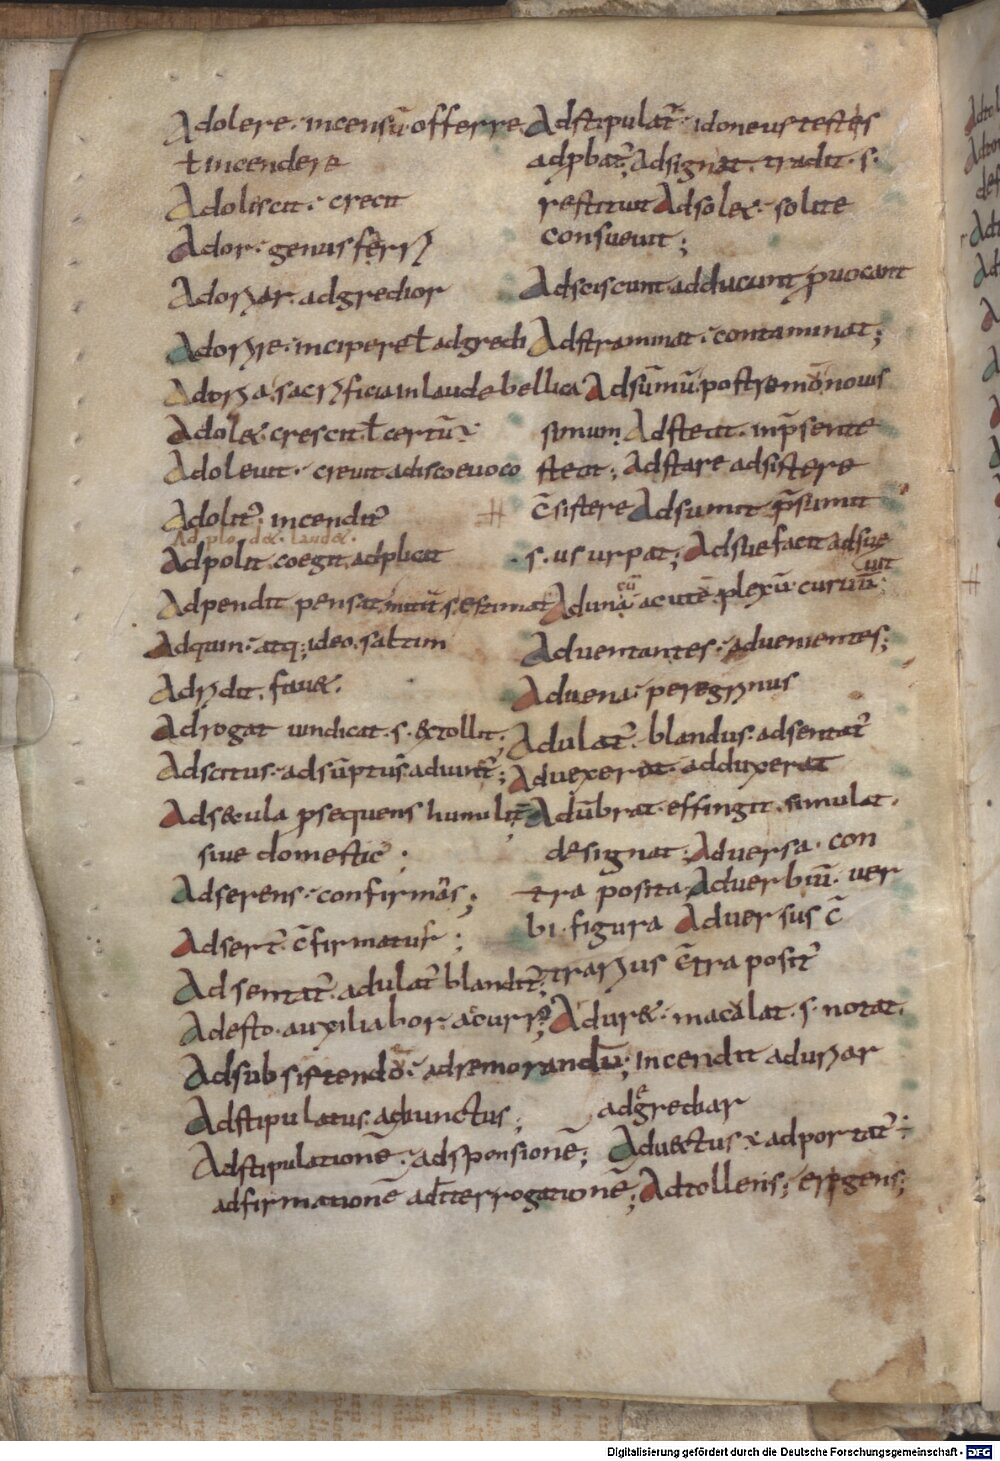 Adolere· incensū· offerre
ł incendere
Adoliscit· crecit
Ador· genus ferri
Adoriar· adgredior
Adorire· incipere ł adgredi
Adoria· sacrificia in laude bellica
Adol&· crescit ł certū
Adoleuit· creuit adisco euoco
Adolit᷑· incendit᷑
Ad plo de&· laud&·
Adpolit· coegit· adplicit
Adpendit pensat s· estimat
Adquin· atq; ideo· saltim
Adridit· fau&·
Adrogat uindicat· s· & tollit;
Adscitus· adsūptus
Adsecula psequens
siue domestic᷑·
Adserens· confirmās;
Adsert᷑· c̄firmatur;
Adsentat᷑· adulat᷑ blandit᷑;
Adesto· auxiliabor·
Adsubsistendō· ad remorandū;
Adstipulatus· adiunctus;
Adstipulationē· adsponsionē;
adfirmationē ad terrogationē;
Adstipulat᷑· idoneus testes
adpbat᷑; Adsignat· tradit· s·
restituit Adsol&· solite
consueuit;
Adsciscunt· adducunt puocant
Adstraminat· contaminat;
Adsūmū· postremō nouis
simum Adsteat· in p̄sente
steat; Adstare adsistere
c̄sistere Adsumit p̄sumit
s· usurpat; Adsuefacit adsue
uit
Aduncū acutē· plexū· curuū;
Aduentantes· aduenientes;
Aduena· peregrinus
Adulat᷑· blandus· adsentat᷑
Aduexerat· adduxerat
Adūbrat· effingit· simulat·
designat· Aduersa· con
tra posita· Aduerbiū· uer
bi· figura Aduersus c̄
trarius c̄tra posit᷑
Adur&· maculat· s· notat·
incendit aduriar
adgrediar
Aduectus· adportat᷑
Adtollens; erigens;
Digitalisierung gefördert durch die Deutsche Forschungsgemeinschaft - DFG